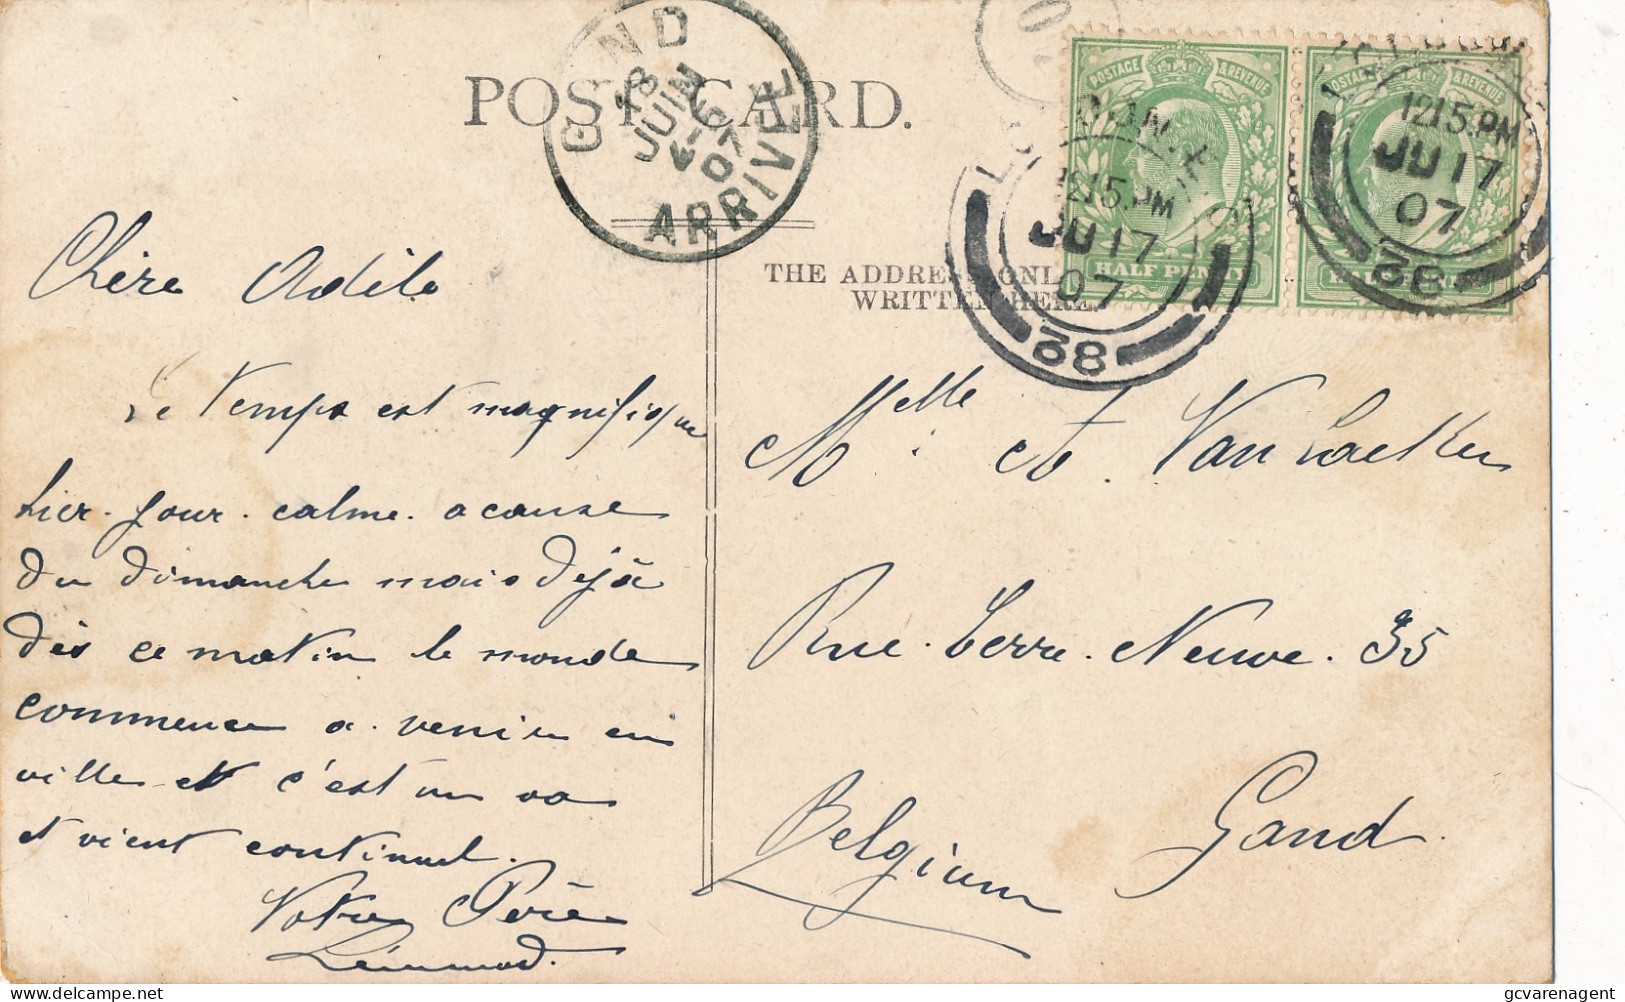 POST CARD.
GAND
18
JUIN
07
ARRIVEE
POSTAGE & REVENUE
POSTAGE & REVENUE
LONDON.
12.15.PM
JU 17
07
38
12.15.PM
JU 17
07
38
HALF PENNY
THE ADDRESS ONLY
WRITTEN HERE.
Chère Adile
Le temps est magnifique
hier. jour. calme. a cause
du dimanche mais dèjà
dès ce matin le monde
commence a. venir en
ville et c'est un va
et vient continuel.
Votre Père
Melle. A. Van
Rue. Terre. Neuve. 35
Gand.
Belgium
gcvarenagent